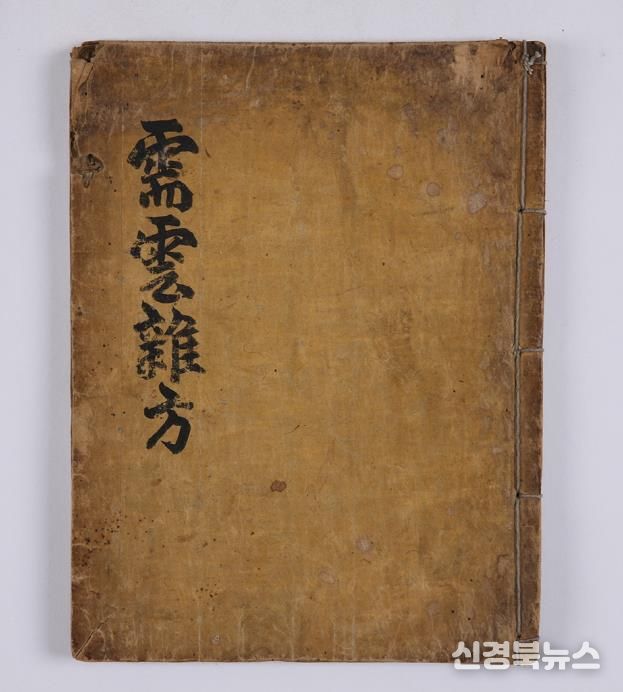 需雲雜方
신경북뉴스